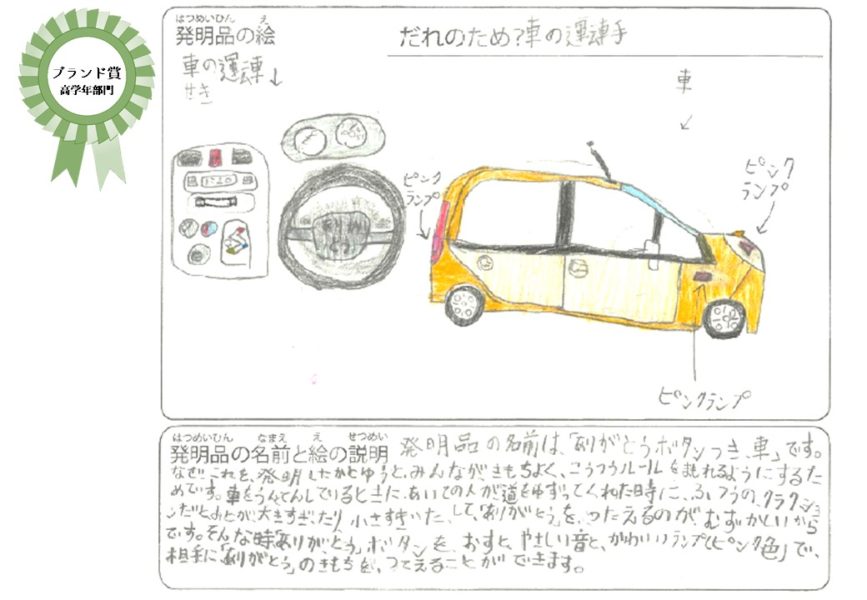 ブランド賞
高学年部門
はつめいひん　え
発明品の絵
だれのため?車の運転手
車の運転↓
せき
車
ピンク
ランプ
ピンク
ランプ
ピンクランプ
はつめいひん　なまえ　え　せつめい
発明品の名前と絵の説明
発明品の名前は、「ありがとうボタンつき、車」です。
なぜこれを、発明したかとゆうと、みんなが、きもちよく、こうつうルールを守れるようにするた
めです。車をうんてんしているときに、あいての人が道をゆずってくれた時に、ふつうの、クラクショ
ンだと、おとが、大きすぎ、たり 小さすぎったり、して、「ありがとう」を、つたえるのがむずかしいから
です。そんな時ありが、とう」ボタンを、おすと、やさしい音と、かわいいランプ(ピンク色)」で、
相手に「ありがとう」のきもちを、つたえることができます。